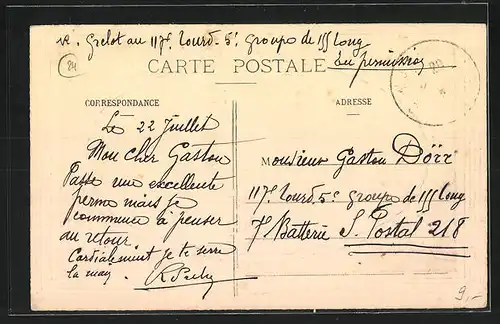 R. Grelot au 117e Lourd 5e groupe de 155 Long
en permission
24
CARTE POSTALE
CORRESPONDANCE
ADRESSE
Le 22 Juillet
Mon cher Gaston
Passe une excellente
perme mais je
commence à penser
au retour
Cordialement je te serre
la main
Monsieur Gaston Dörr
117e Lourd 5e groupe de 155 Long
7e Batterie S. Postal 218
9,-